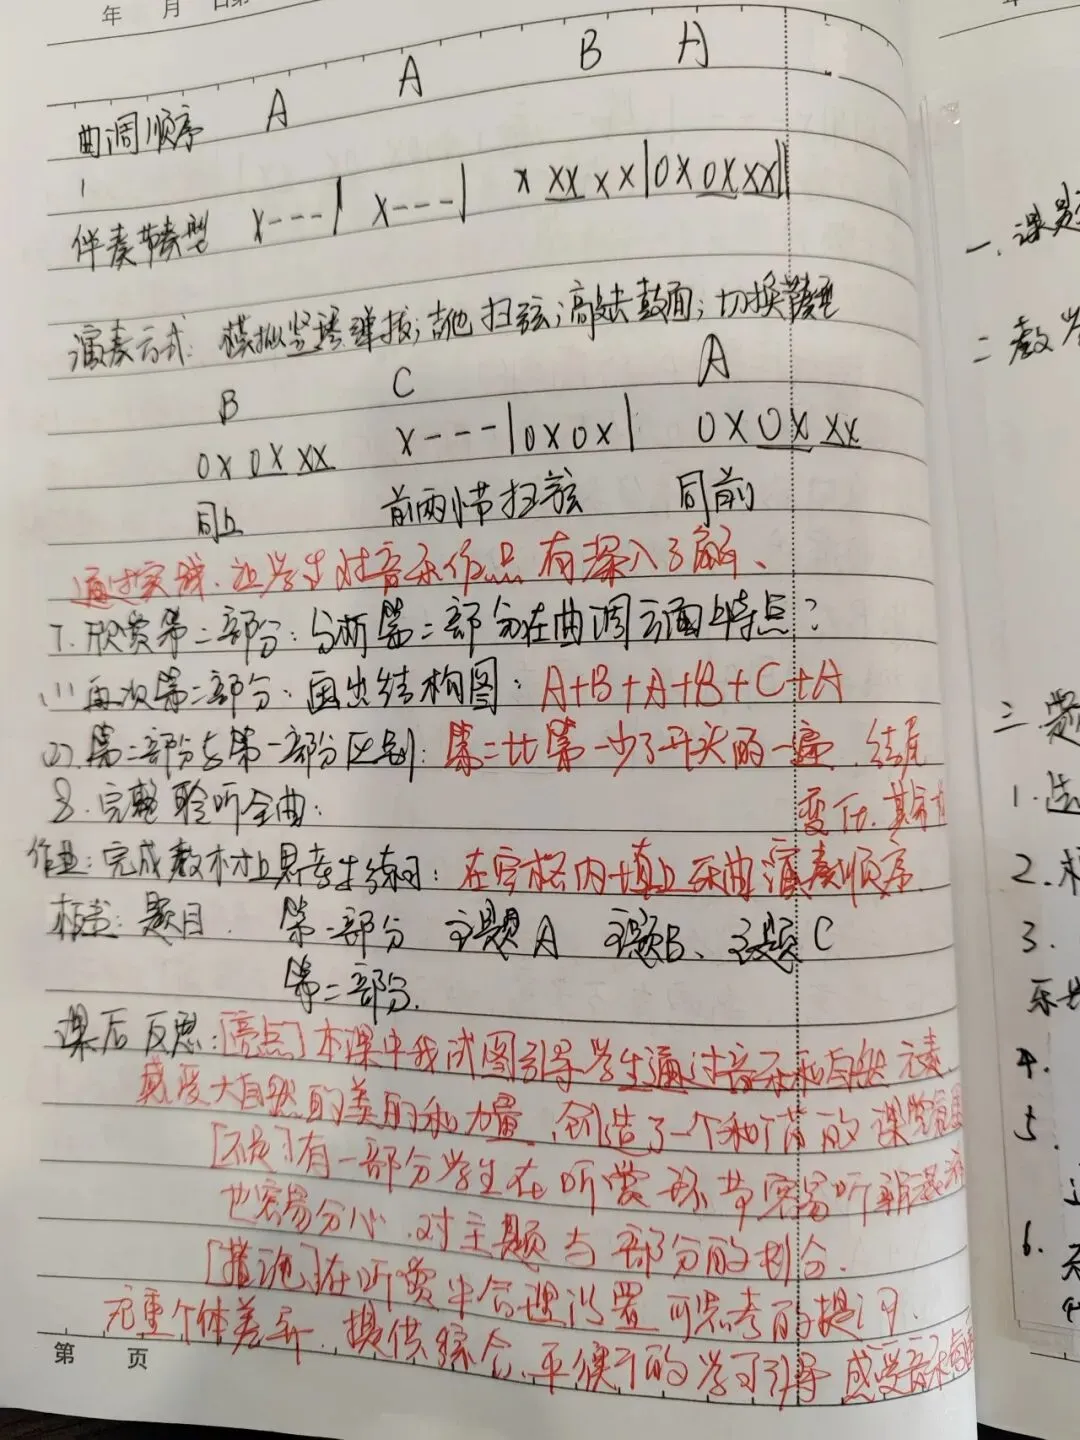 年 月 日
A A B A
曲调顺序
伴奏节奏型 X---| X---| X XX X X|0X 0X XX‖
演奏方式: 模拟竖琴弹拔;吉他扫弦;高处击鼓面;切换节奏型
B C A
0X 0X XX X---|0X0X| 0X 0X XX
同上 前两小节扫弦 同前
通过实践、让学生对音乐作品有深入了解、
7. 欣赏第二部分: 分析第二部分在曲调方面上特点?
(1) 再次第二部分: 画出结构图: A+B+A+B+C+A
(2). 第二部分与第一部分区别: 第二比第一少了开头的一遍、结尾
变化、其余
8. 完整聆听全曲:
作业: 完成教材上思考与练习: 在空格内填上乐曲演奏顺序
板书: 题目. 第一部分 主题A 主题B、主题C
第二部分.
课后反思: [亮点] 本课中我试图引导学生通过音乐和自然元素
感受大自然的美丽和力量、创造了一个和谐的课堂
[不足] 有一部分学生在听赏环节容易听
也容易分心、对主题与部分的划分.
[措施] 在听赏中合理设置可思考的提问.
尤重个体差异、提供综合、平衡的学习引导 感受音乐
第 页
一、课题
二 教学
三
1.
2.
3.
4.
5.
6.